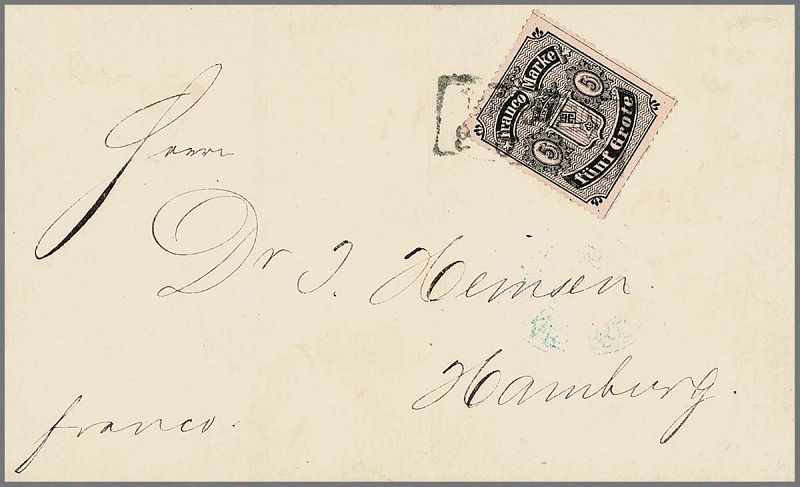 franco Marke
5
5
fünf Grote
Herrn
Dr J. Heinsen.
Hamburg.
franco.